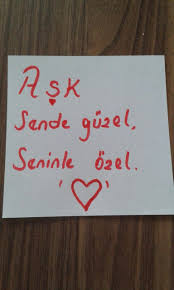 Aşk
Sende güzel,
Seninle özel.